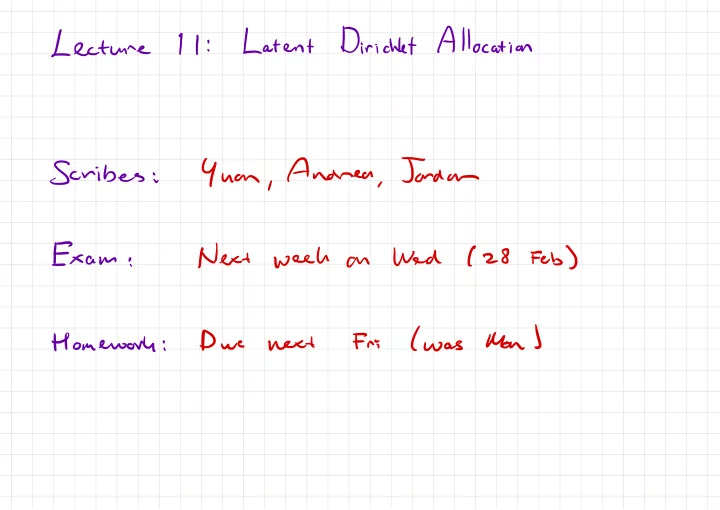 Lecture 11: Latent Dirichlet Allocation
Scribes: Yuan, Andrea, Jordan
Exam: Next week on Wed (28 Feb)
Homework: Due next Fri (was Mon)